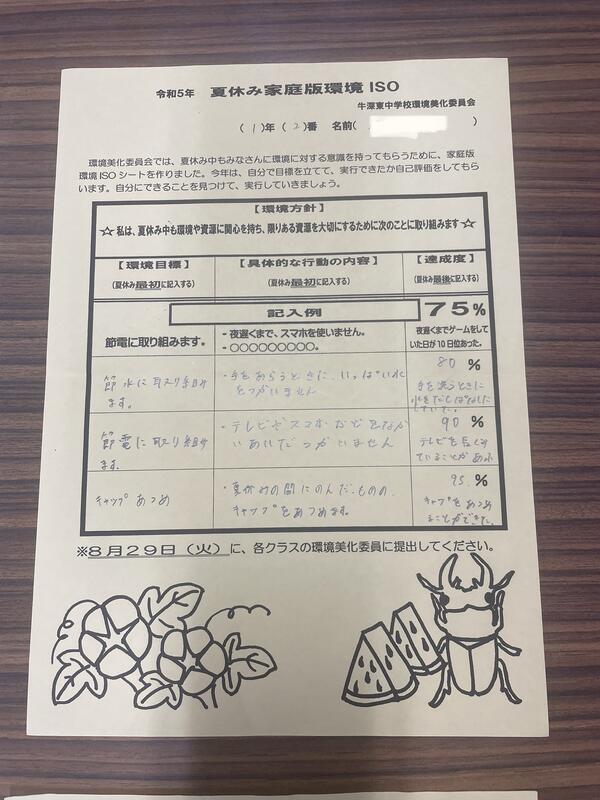 令和5年 夏休み家庭版環境ISO
牛深東中学校環境美化委員会
(1)年(2)番 名前( )
環境美化委員会では、夏休み中もみなさんに環境に対する意識を持ってもらうために、家庭版
環境ISOシートを作りました。今年は、自分で目標を立てて、実行できたか自己評価をしてもら
います。自分にできることを見つけて、実行していきましょう。
【環境方針】
☆私は、夏休み中も環境や資源に関心を持ち、限りある資源を大切にするために次のことに取り組みます☆
【環境目標】 【具体的な行動の内容】 【達成度】
(夏休み最初に記入する) (夏休み最初に記入する) (夏休み最後に記入する)
記入例 75%
節電に取り組みます。
・夜遅くまで、スマホを使いません。
・○○○○○○○○○。
夜遅くまでゲームをして
いた日が10日位あった。
節水に取り組み
ます。
・手をあらうときに、いっぱい水
をつかいません
80 %
手を洗うときに
水をだしぱなしに
していた。
節電に取り組み
ます。
・テレビやスマホなどをなが
いあいだつかいません
90 %
テレビを長くみ
ていることがあった
キャップあつめ
・夏休みの間にのんだものの
キャップをあつめます。
95 %
キャップをあつめ
ることができた。
※8月29日(火)に、各クラスの環境美化委員に提出してください。